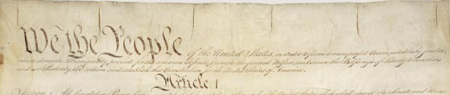 We the People of the United States, in Order to form a more perfect Union, establish Justice,
insure domestic Tranquility, provide for the common defence, promote the general Welfare, and secure the Blessings of Liberty to ourselves
and our Posterity, do ordain and establish this Constitution for the United States of America.
Article. I.